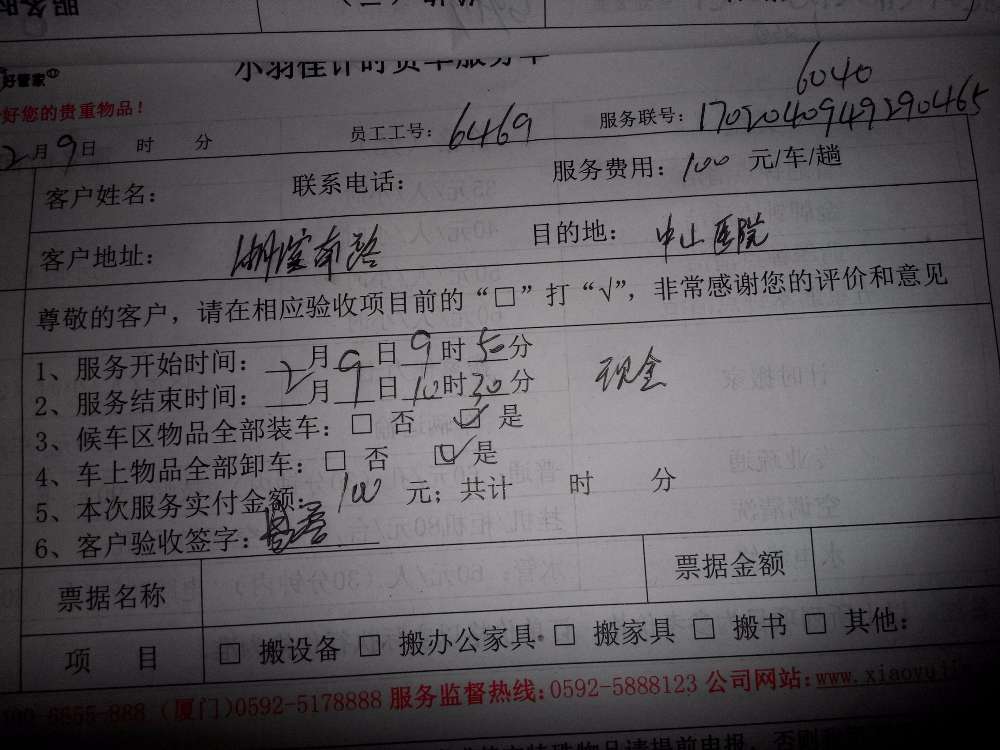 好管家
小羽佳计时货车服务单
好您的贵重物品！
6040
2月9日 时 分 员工工号：6469 服务联号：17020409492290465
客户姓名： 联系电话： 服务费用：100 元/车/趟
客户地址：湖滨南路 目的地：中山医院
尊敬的客户，请在相应验收项目前的“□”打“√”，非常感谢您的评价和意见
1、服务开始时间：2月9日9时50分
2、服务结束时间：2月9日10时30分 现金
3、候车区物品全部装车：□ 否 ☑ 是
4、车上物品全部卸车：□ 否 ☑ 是
5、本次服务实付金额：100 元；共计 时 分
6、客户验收签字：
票据名称 票据金额
项 目 □ 搬设备 □ 搬办公家具 □ 搬家具 □ 搬书 □ 其他：
(厦门)0592-5178888 服务监督热线:0592-5888123 公司网站:www.xiaoyuj